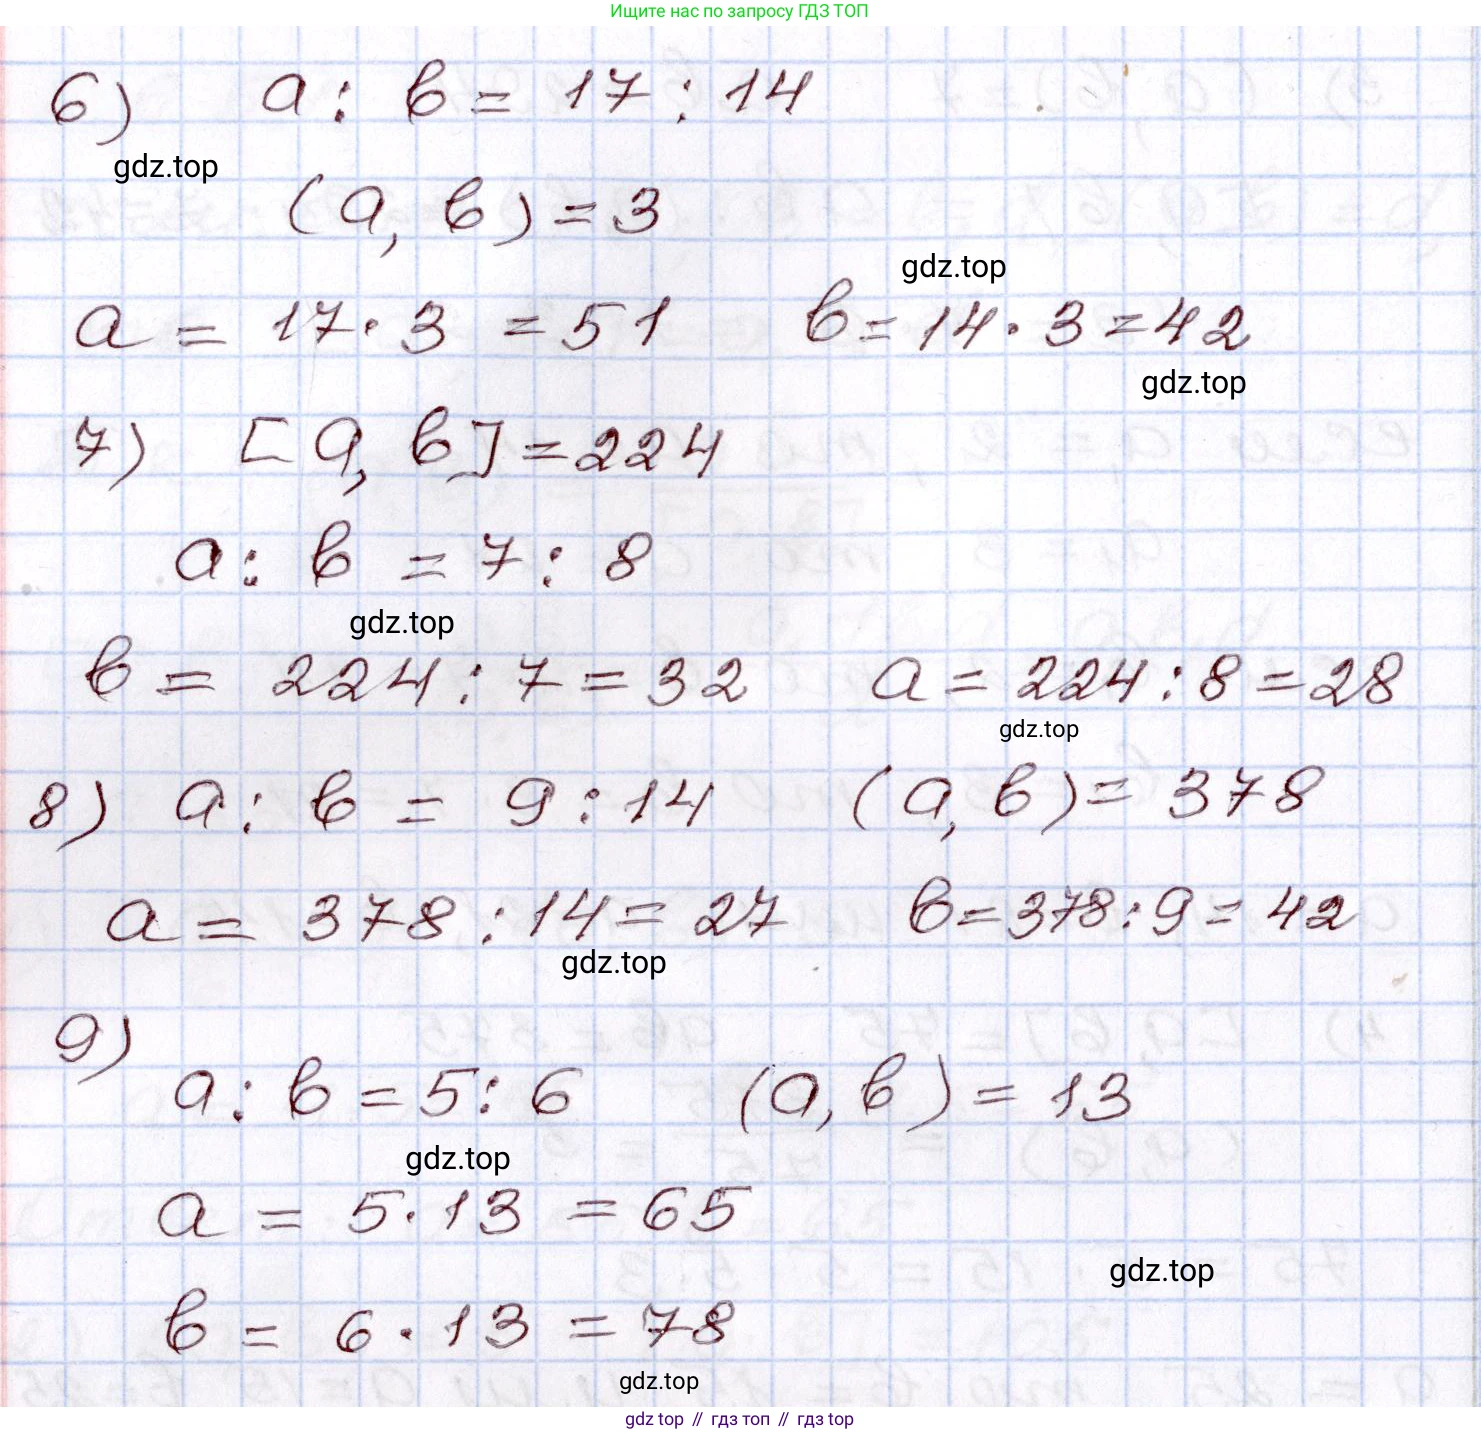 Ищите нас по запросу ГДЗ ТОП
6) a : в = 17 : 14
gdz.top
(a, в) = 3
gdz.top
a = 17 · 3 = 51 в = 14 · 3 = 42
gdz.top
7) [a, в] = 224
a : в = 7 : 8
gdz.top
в = 224 : 7 = 32 a = 224 : 8 = 28
gdz.top
8) a : в = 9 : 14 (a, в) = 378
a = 378 : 14 = 27 в = 378 : 9 = 42
gdz.top
9)
a : в = 5 : 6 (a, в) = 13
gdz.top
a = 5 · 13 = 65
gdz.top
в = 6 · 13 = 78
gdz.top
gdz top // гдз топ // гдз top